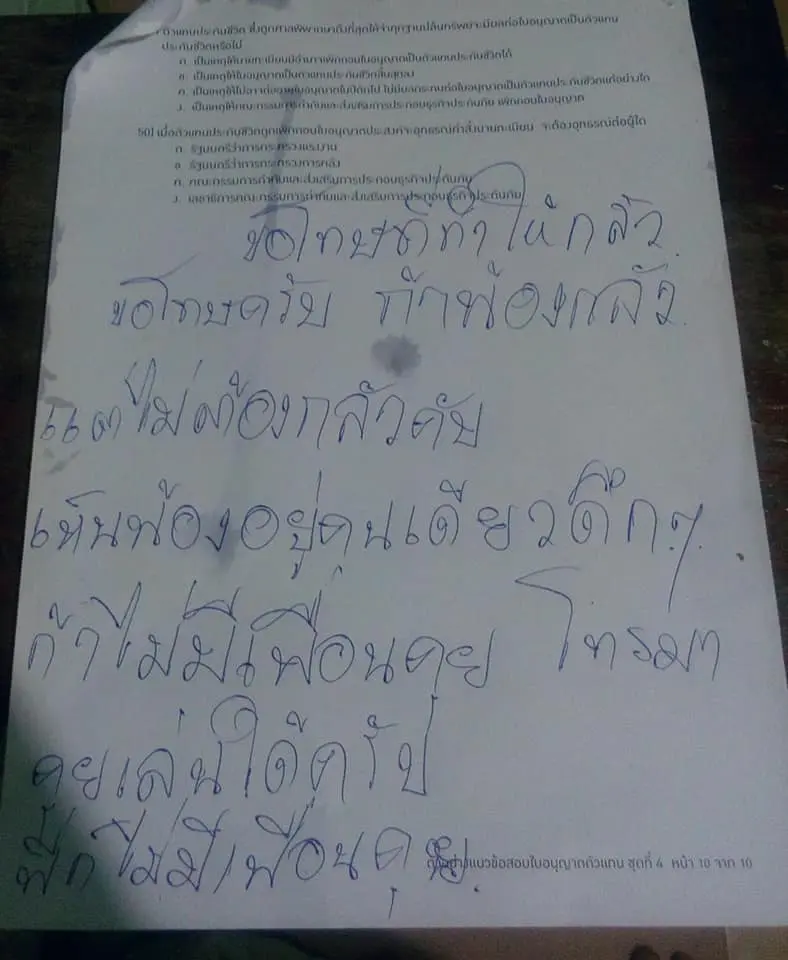 ตัวแทนประกันชีวิต ซึ่งถูกศาลพิพากษาถึงที่สุดได้ว่าทุกฐานปล้นทรัพย์จะมีผลต่อใบอนุญาตเป็นตัวแทน
ประกันชีวิตหรือไม่
ก. เป็นเหตุให้นายทะเบียนมีอำนาจเพิกถอนใบอนุญาตเป็นตัวแทนประกันชีวิตได้
ข. เป็นเหตุให้ใบอนุญาตเป็นตัวแทนประกันชีวิตสิ้นสุดลง
ค. เป็นเหตุให้ไม่อาจต่ออายุใบอนุญาตในปีถัดไป ไม่มีผลกระทบต่อใบอนุญาตเป็นตัวแทนประกันชีวิตแต่อย่างใด
ง. เป็นเหตุให้คณะกรรมการกำกับและส่งเสริมการประกอบธุรกิจประกันภัย เพิกถอนใบอนุญาต
50) เมื่อตัวแทนประกันชีวิตถูกเพิกถอนใบอนุญาตประสงค์จะอุทธรณ์คำสั่งนายทะเบียน จะต้องอุทธรณ์ต่อผู้ใด
ก. รัฐมนตรีว่าการกระทรวงแรงงาน
ข. รัฐมนตรีว่าการกระทรวงการคลัง
ค. คณะกรรมการกำกับและส่งเสริมการประกอบธุรกิจประกันภัย
ง. เลขาธิการคณะกรรมการกำกับและส่งเสริมการประกอบธุรกิจประกันภัย
ขอโทษที่ทำให้กลัว
ขอโทษครับ ถ้าน้องกลัว
แต่ไม่ต้องกลัวคับ
เห็นน้องอยู่คนเดียวดึกๆ
ถ้าไม่มีเพื่อนคุย โทรมา
คุยเล่นได้ครับ
พี่ก็ไม่มีเพื่อนคุย
ตัวอย่างแนวข้อสอบใบอนุญาตตัวแทน ชุดที่ 4 หน้า 10 จาก 10